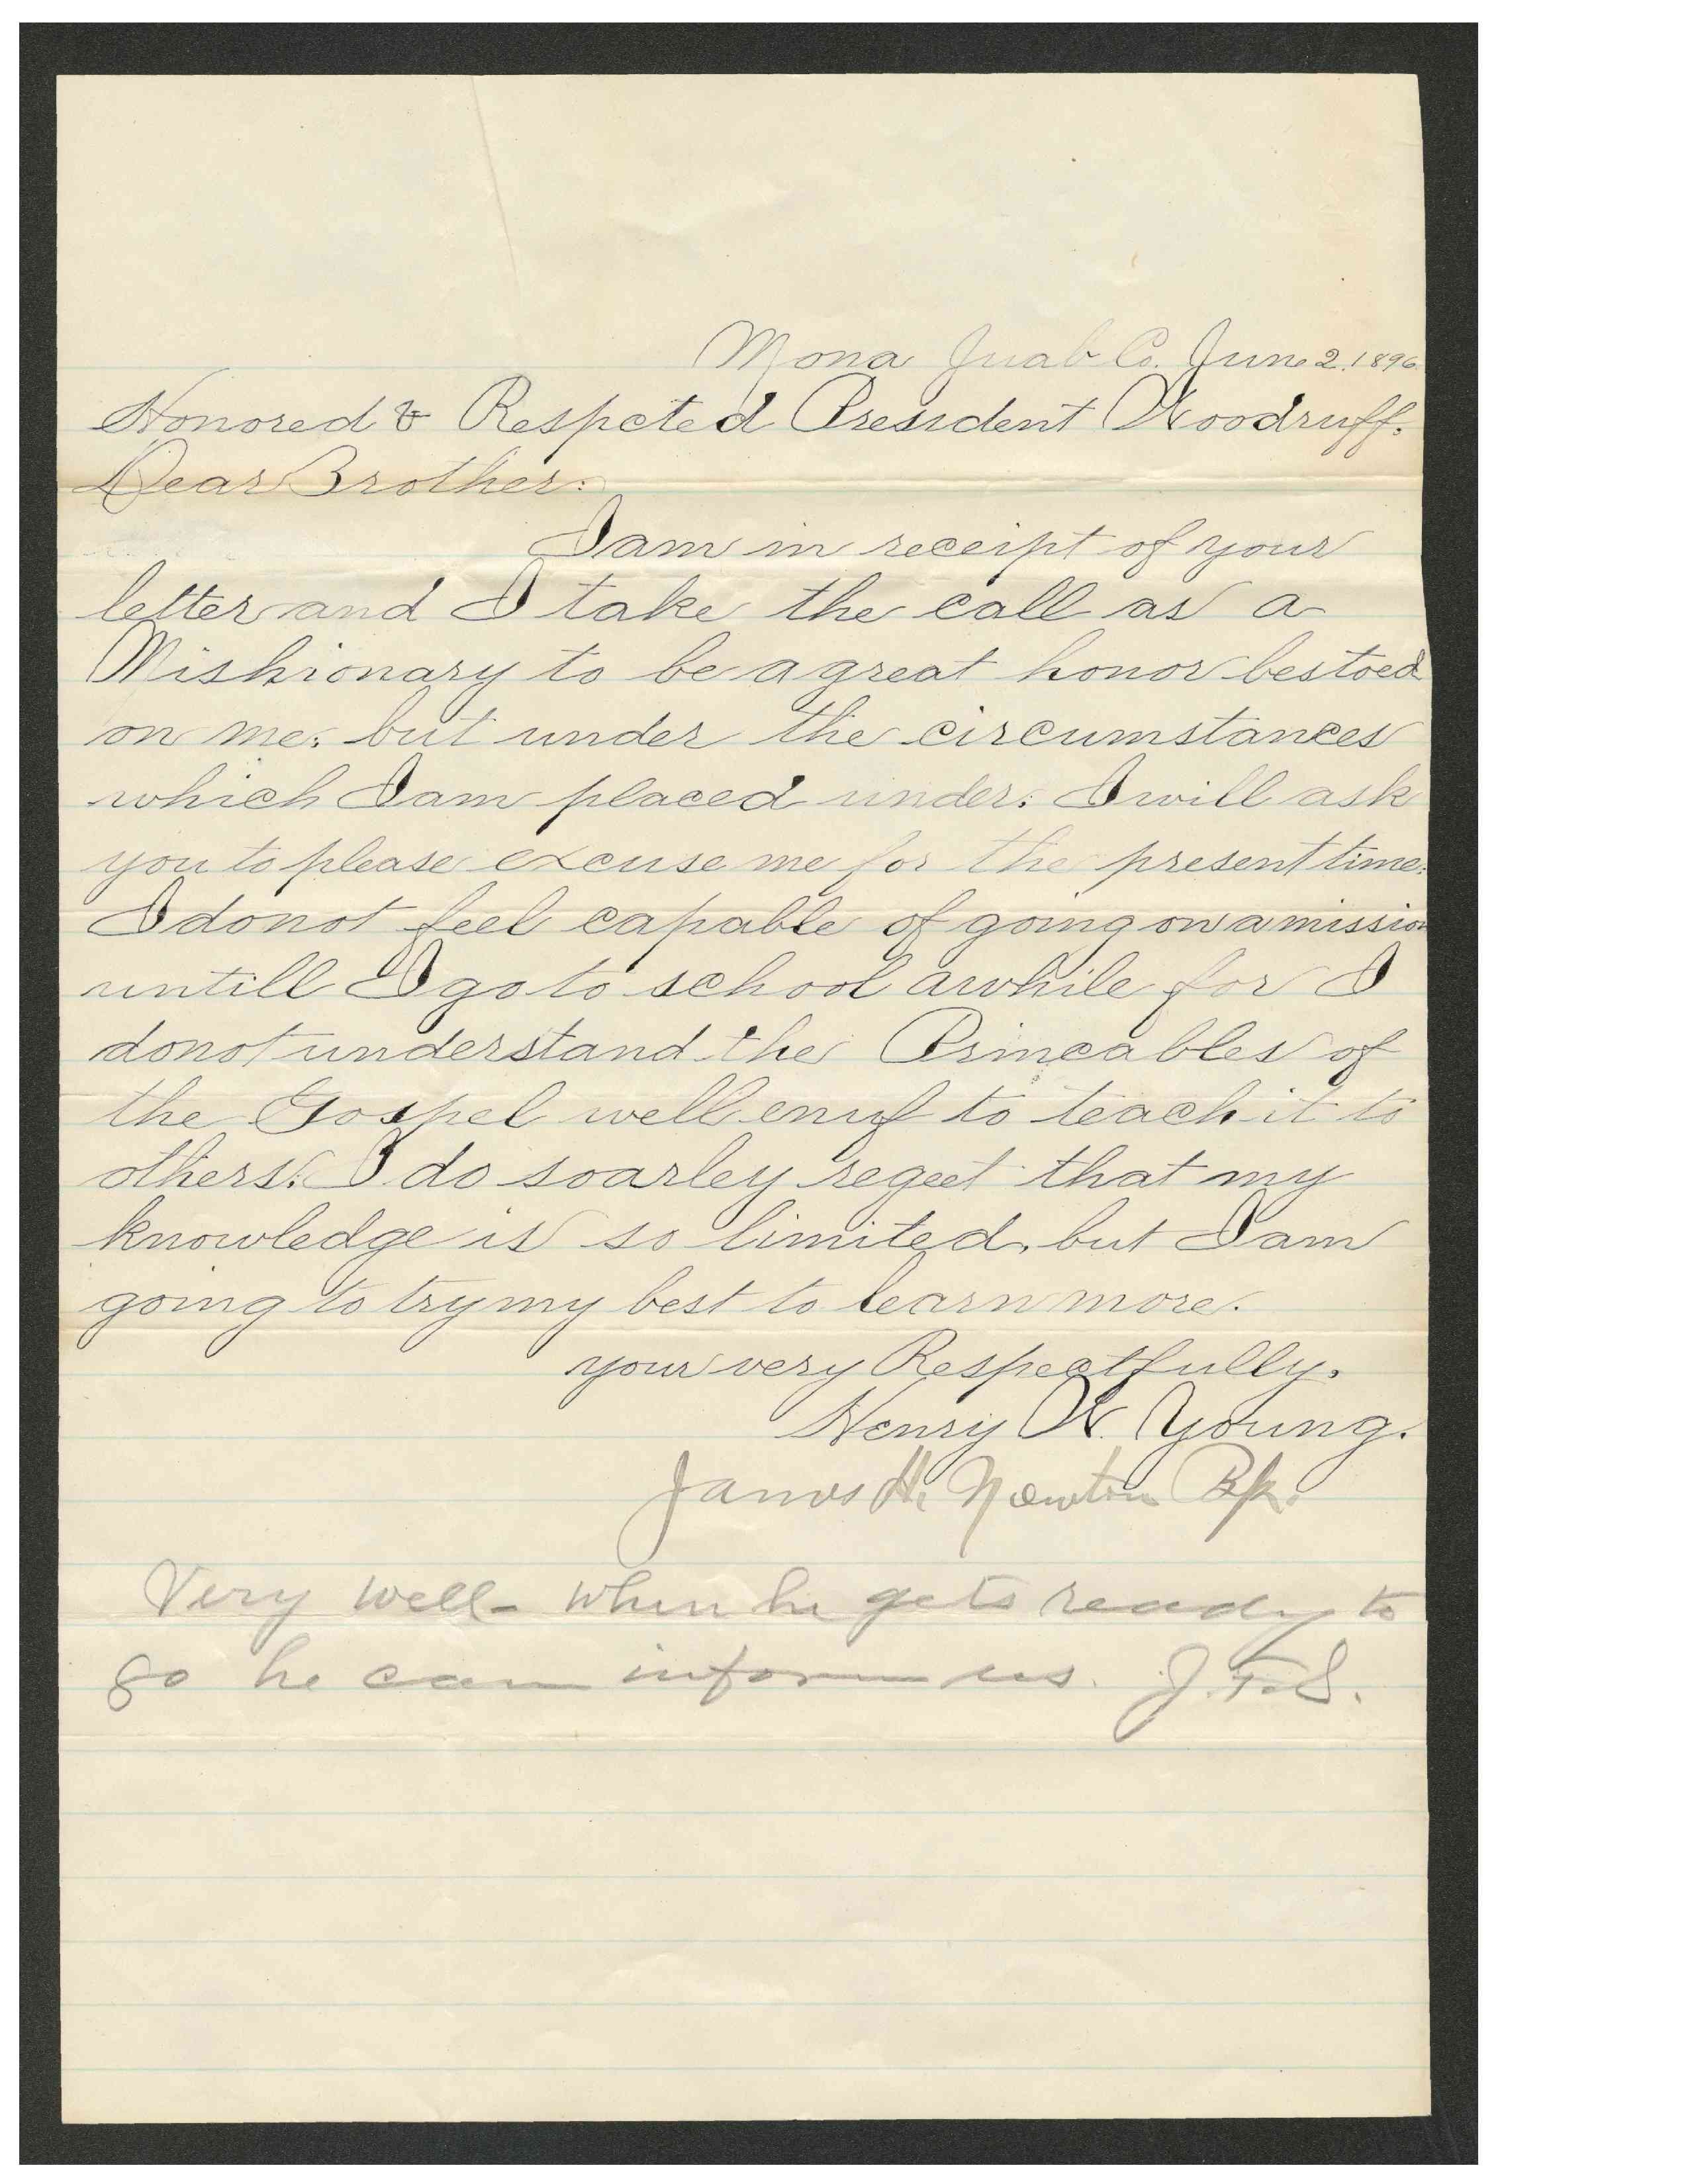 Mona Juab Co. June 2. 1896.
Honored & Respcted President Woodruff.
Dear Brother:
I am in receipt of your
letter and I take the call as a
Mishionary to be a great honor bestoed
on me: but under the circumstances
which I am placed under: I will ask
you to please excuse me for the present time:
I do not feel capable of going on a mission
untill I go to school awhile for I
do not understand the Princables of
the Gospel well enuf to teach it to
others. I do soarley reget that my
knowledge is so limited, but I am
going to try my best to learn more.
your very Respectfully,
Henry W. Young.
James H. Newton Bp.
Very well - When he gets ready to
go he can inform us. J. F. S.